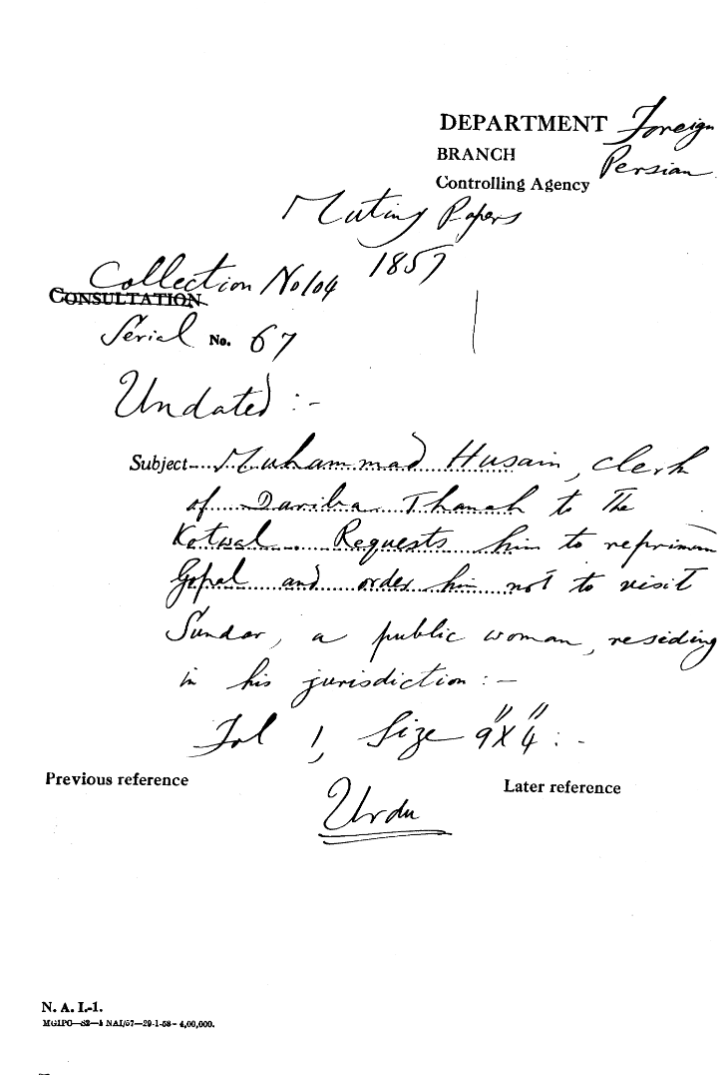 DEPARTMENT Foreign
BRANCH Persian
Controlling Agency
Mutiny Papers
1857
Collection No 104
CONSULTATION
Serial No. 67
Undated :-
Subject....Muhammad Husain, clerk
of Dariba Thanah to the
Kotwal. Requests him to repriman
Gopal and order him not to visit
Sundar, a public woman, residing
in his jurisdiction :-
Fol 1, Size 9"X4" :-
Previous reference
Later reference
Urdu
N. A. I.-1.
MGIPC—S2—1 NAI/57—29-1-58—4,00,000.